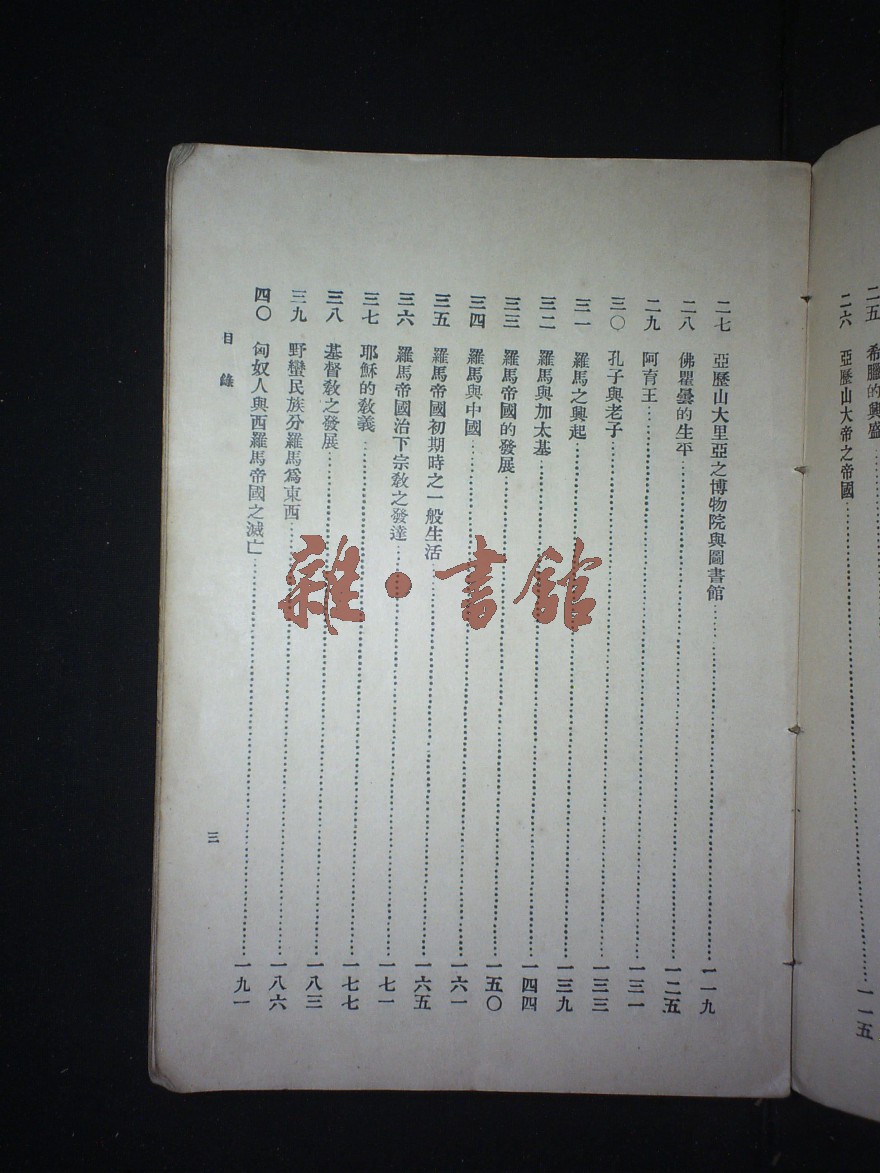 二五 希臘的興盛
二六 亞歷山大帝之帝國 一一五
二七 亞歷山大里亞之博物院與圖書館 一一九
二八 佛瞿曇的生平 一二五
二九 阿育王 一三一
三〇 孔子與老子 一三三
三一 羅馬之興起 一三九
三二 羅馬與加太基 一四四
三三 羅馬帝國的發展 一五〇
三四 羅馬與中國 一六一
三五 羅馬帝國初期時之一般生活 一六五
三六 羅馬帝國治下宗敎之發達 一七一
三七 耶穌的敎義 一七七
三八 基督敎之發展 一八三
三九 野蠻民族分羅馬爲東西 一八六
四〇 匈奴人與西羅馬帝國之滅亡 一九一
目錄
三
雜·書館